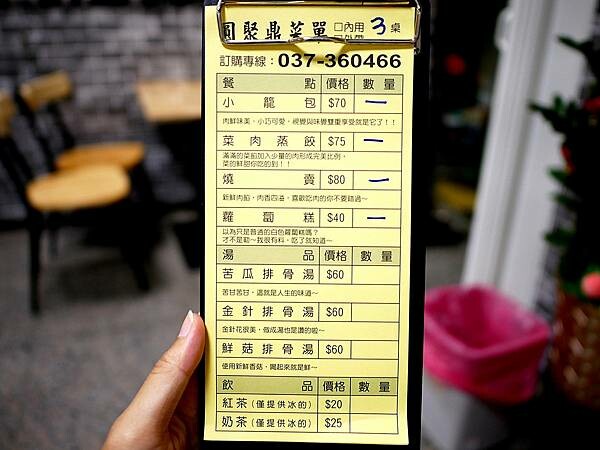 圓聚鼎菜單 □內用 3 桌
□外帶
訂購專線：037-360466
餐 點 價格 數 量
小 龍 包 $70 一
肉鮮味美，小巧可愛，視覺與味覺雙重享受就是它了！！
菜肉蒸餃 $75 一
滿滿的菜餡加入少量的肉形成完美比例，
菜的鮮甜你吃的到！！
燒 賣 $80 一
新鮮肉餡，肉香四溢，喜歡吃肉的你不要錯過～
蘿 蔔 糕 $40 一
以為只是普通的白色蘿蔔糕嗎？
才不是勒～我很有料，吃了就知道～
湯 品 價格 數 量
苦瓜排骨湯 $60
苦甘苦甘，這就是人生的味道～
金針排骨湯 $60
金針花很美，做成湯也是讚的啦～
鮮菇排骨湯 $60
使用新鮮香菇，喝起來就是鮮～
飲 品 價格 數 量
紅茶(僅提供冰的) $20
奶茶(僅提供冰的) $25